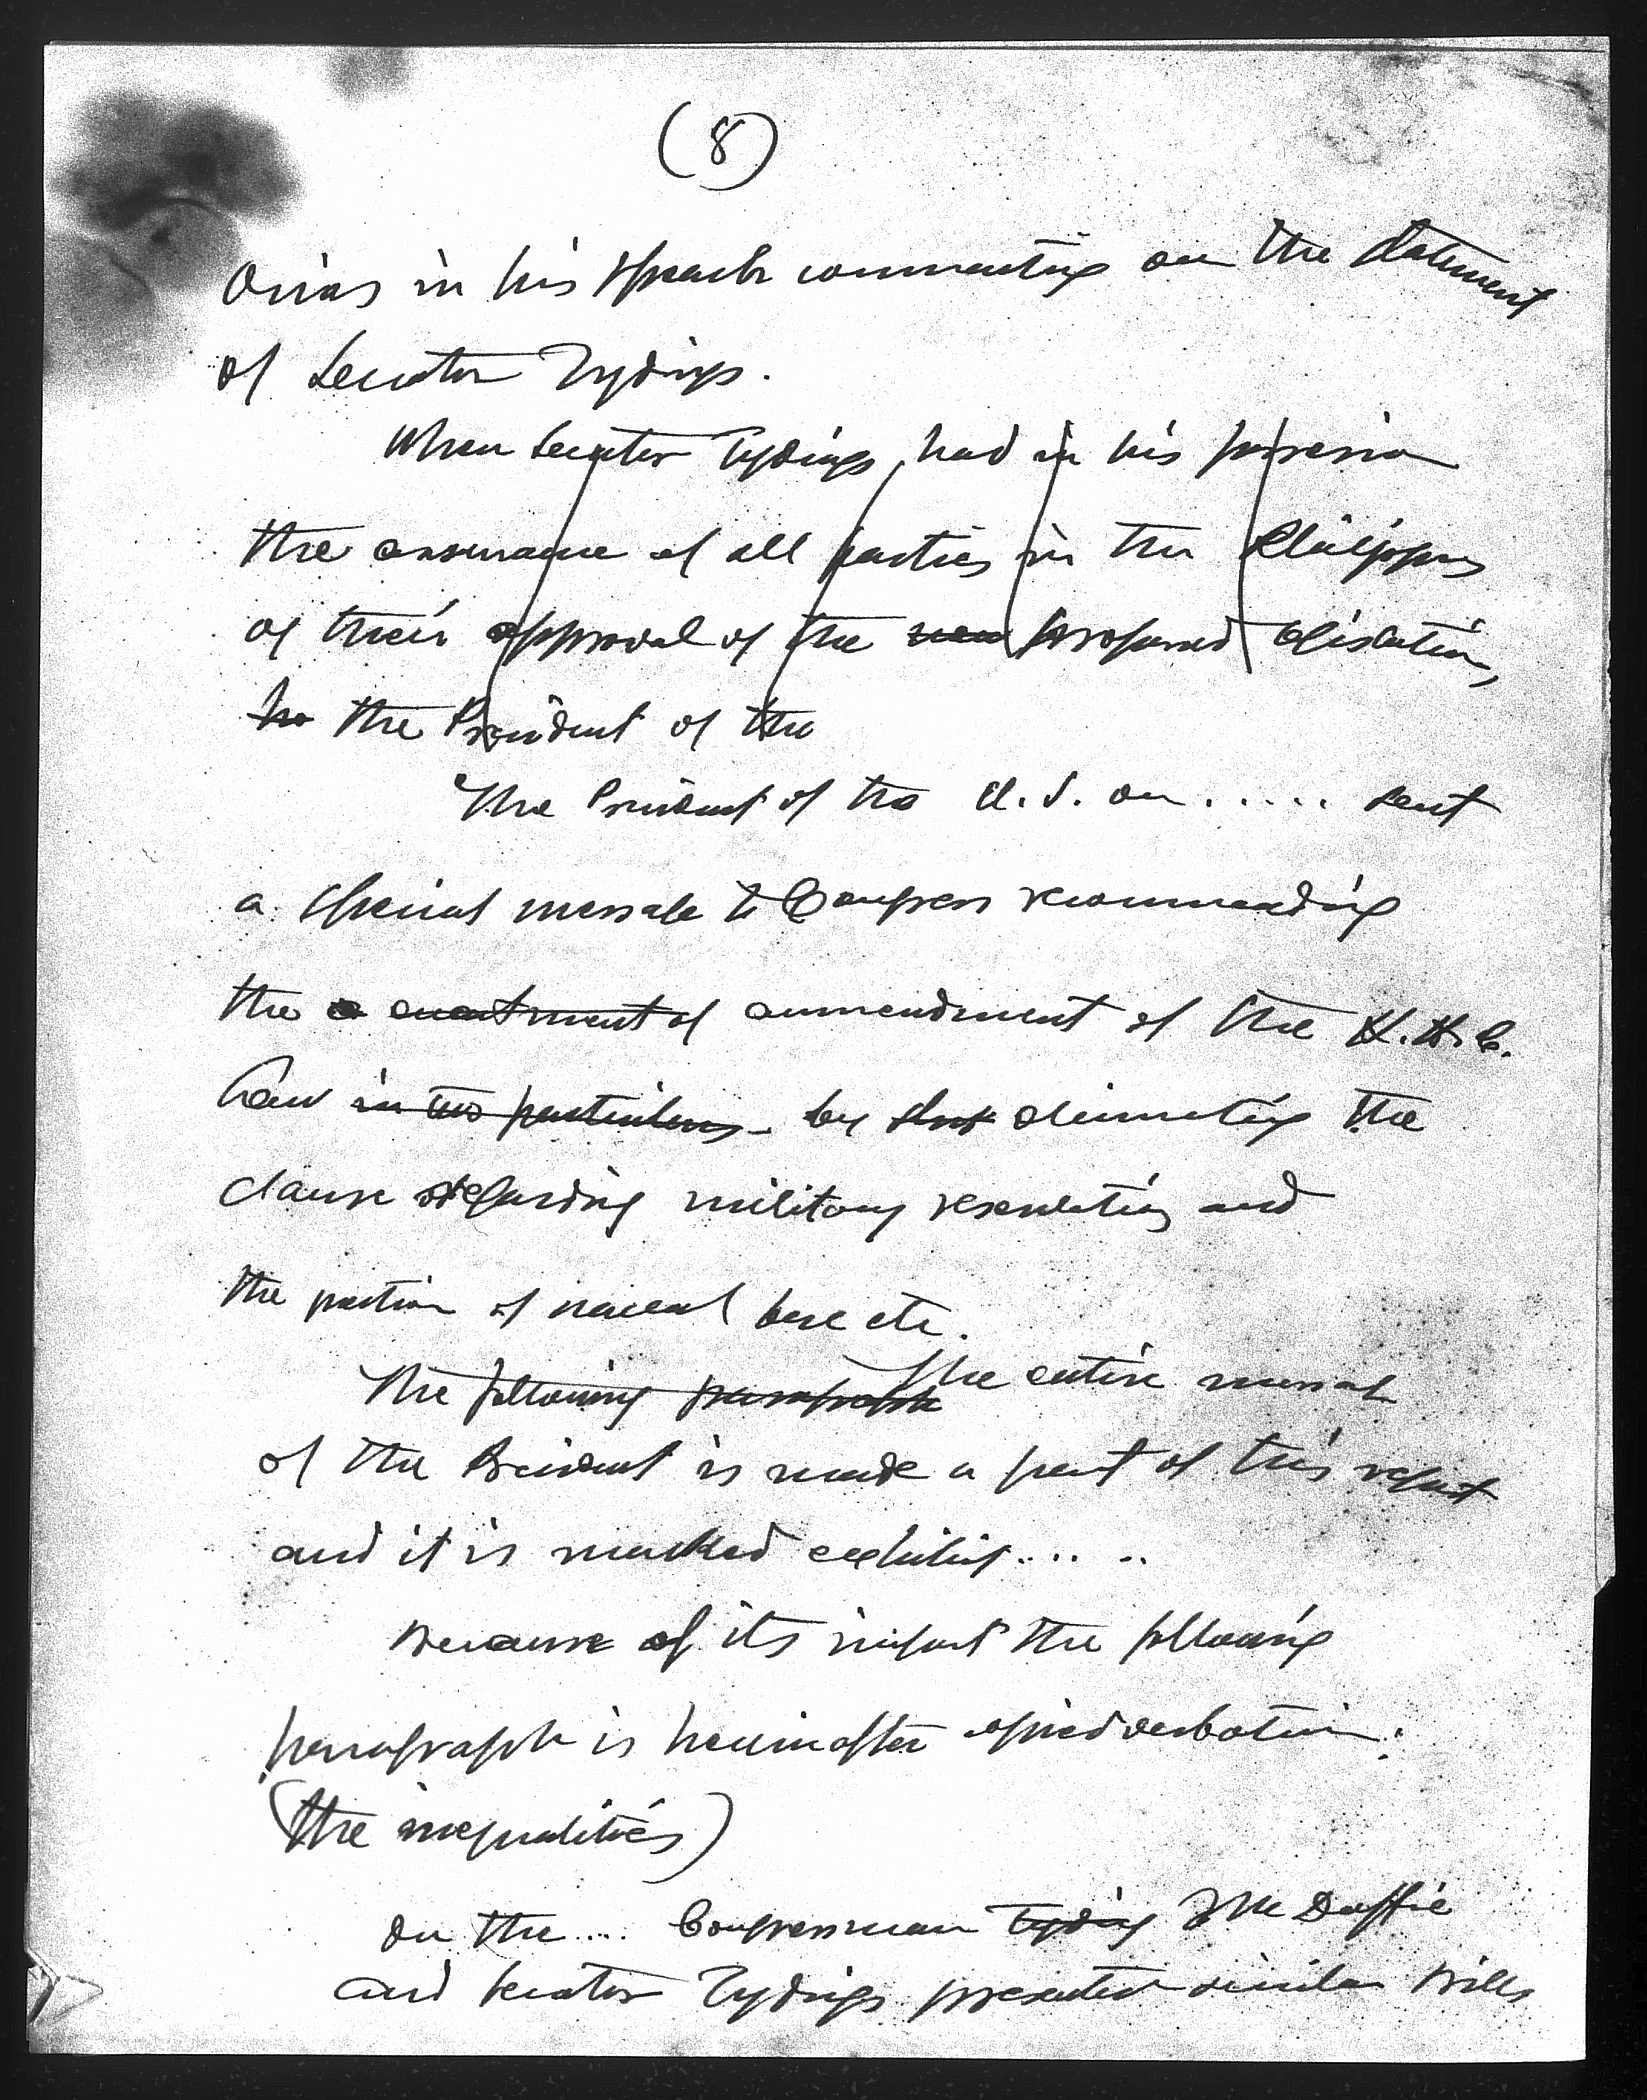 (8)
Osias in his speech commenting on the statement
of Senator Tydings.
When Senator Tydings had in his possession
the assurance of all parties in the Philippines
of their approval of the new proposed legislation,
the President of the
The President of the U.S. on ..... sent
a special message to Congress recommending
the enactment of ammendment of the H.H.C.
Law in two particulars by eliminating the
clause regarding military reservations and
the portion of naval base etc.
The following paragraph The entire message
of the President is made a part of this report
and it is marked exhibit.....
Because of its import the following
paragraph is hereinafter copied verbatim:
(the inequalities)
On the .... Congressman Tydings McDuffie
and Senator Tydings presented similar bills